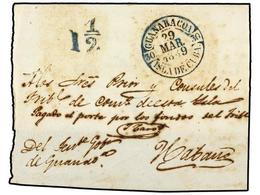 1 1/2
GUANABACOA
29
MAR.
1859
ISLA DE CUBA
A los Sres Prior y Consules del
Trib.l de Com.o de esta Isla
Pagado el porte por los fondos del Trib.
Del
de Guanab.
Habana